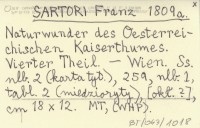 SARTORI Franz 1809a.
Naturwunder des Oesterrei-
chischen Kaiserthumes.
Vierter Theil. — Wien. Ss.
nlb. 2 (karta tyt.), 259, nlb. 1,
tabl. 2 (miedzioryty), [okł. 2],
cm 18 x 12. MT, (WHP).
BT/043/1018